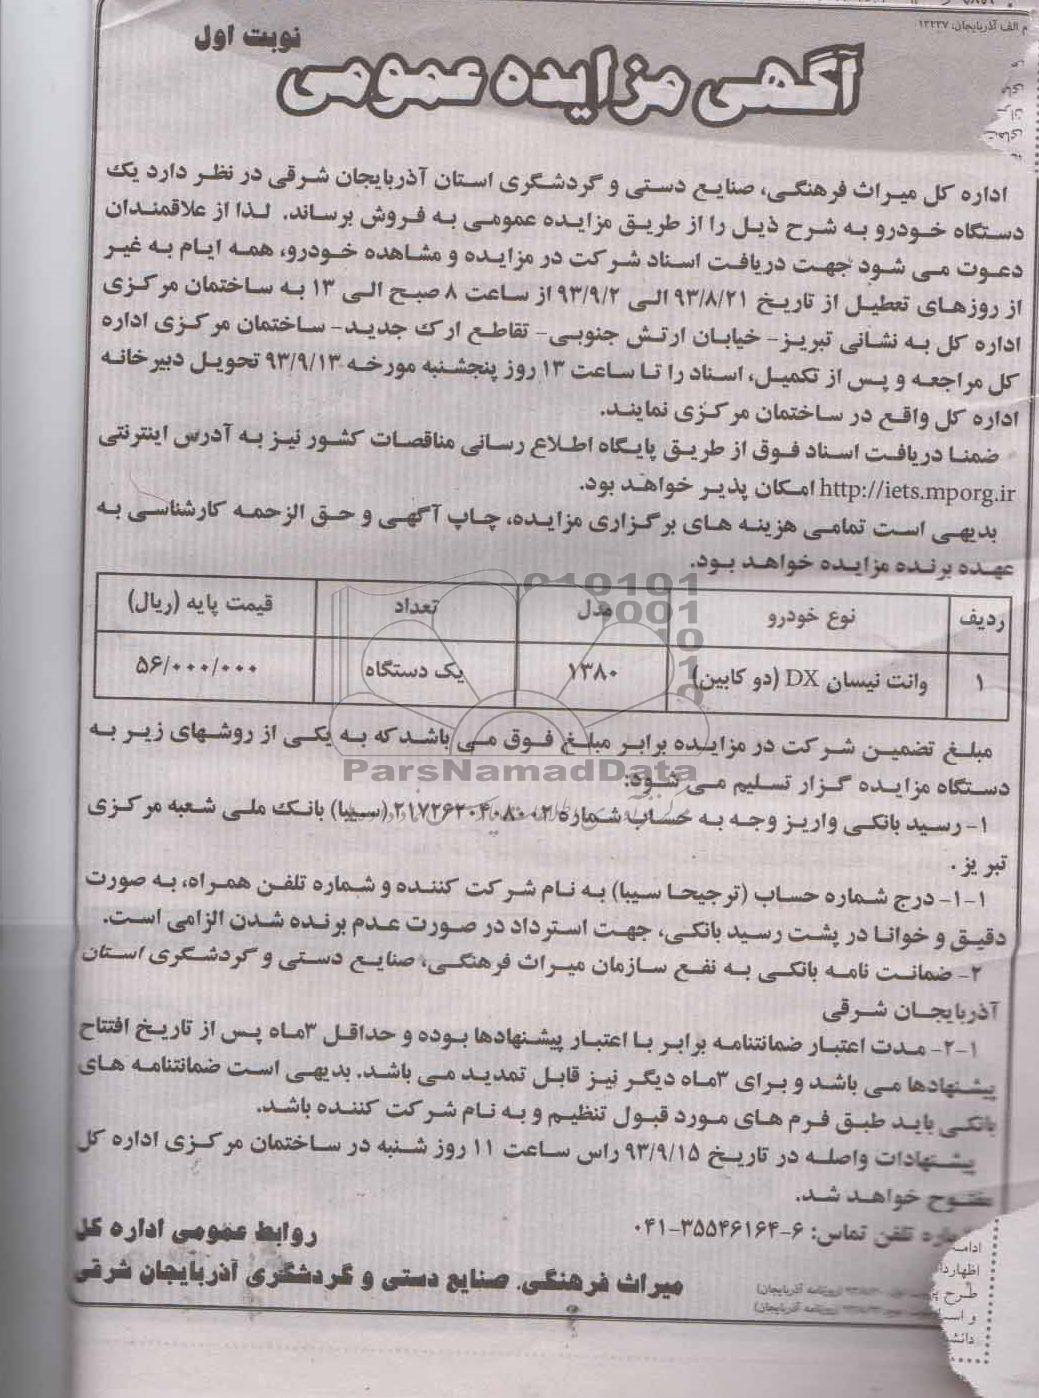 م الف آذربایجان، ۱۲۲۳۷
نوبت اول
آگهی مزایده عمومی
اداره کل میراث فرهنگی، صنایع دستی و گردشگری استان آذربایجان شرقی در نظر دارد یک
دستگاه خودرو به شرح ذیل را از طریق مزایده عمومی به فروش برساند. لذا از علاقمندان
دعوت می شود جهت دریافت اسناد شرکت در مزایده و مشاهده خودرو، همه ایام به غیر
از روزهای تعطیل از تاریخ ۹۳/۸/۲۱ الی ۹۳/۹/۲ از ساعت ۸ صبح الی ۱۳ به ساختمان مرکزی
اداره کل به نشانی تبریز- خیابان ارتش جنوبی- تقاطع ارک جدید- ساختمان مرکزی اداره
کل مراجعه و پس از تکمیل، اسناد را تا ساعت ۱۳ روز پنجشنبه مورخه ۹۳/۹/۱۳ تحویل دبیرخانه
اداره کل واقع در ساختمان مرکزی نمایند.
ضمنا دریافت اسناد فوق از طریق پایگاه اطلاع رسانی مناقصات کشور نیز به آدرس اینترنتی
http://iets.mporg.ir امکان پذیر خواهد بود.
بدیهی است تمامی هزینه های برگزاری مزایده، چاپ آگهی و حق الزحمه کارشناسی به
عهده برنده مزایده خواهد بود.
ردیف نوع خودرو مدل تعداد قیمت پایه (ریال)
۱ وانت نیسان DX (دو کابین) ۱۳۸۰ یک دستگاه ۵۶/۰۰۰/۰۰۰
مبلغ تضمین شرکت در مزایده برابر مبلغ فوق می باشد که به یکی از روشهای زیر به
ParsNamadData
دستگاه مزایده گزار تسلیم می شود:
۱- رسید بانکی واریز وجه به حساب شماره ۲۱۷۲۶۲۰۴۰۸۰۰۲ (سیبا) بانک ملی شعبه مرکزی
تبریز.
۱-۱- درج شماره حساب (ترجیحا سیبا) به نام شرکت کننده و شماره تلفن همراه، به صورت
دقیق و خوانا در پشت رسید بانکی، جهت استرداد در صورت عدم برنده شدن الزامی است.
۲- ضمانت نامه بانکی به نفع سازمان میراث فرهنگی، صنایع دستی و گردشگری استان
آذربایجان شرقی
۲-۱- مدت اعتبار ضمانتنامه برابر با اعتبار پیشنهادها بوده و حداقل ۳ماه پس از تاریخ افتتاح
پیشنهادها می باشد و برای ۳ماه دیگر نیز قابل تمدید می باشد. بدیهی است ضمانتنامه های
بانکی باید طبق فرم های مورد قبول تنظیم و به نام شرکت کننده باشد.
پیشنهادات واصله در تاریخ ۹۳/۹/۱۵ راس ساعت ۱۱ روز شنبه در ساختمان مرکزی اداره کل
مفتوح خواهد شد.
شماره تلفن تماس: ۶-۳۵۵۴۶۱۶۴-۰۴۱
روابط عمومی اداره کل
میراث فرهنگی، صنایع دستی و گردشگری آذربایجان شرقی
ادامه
اظهارد
طرح
و اس
دانش